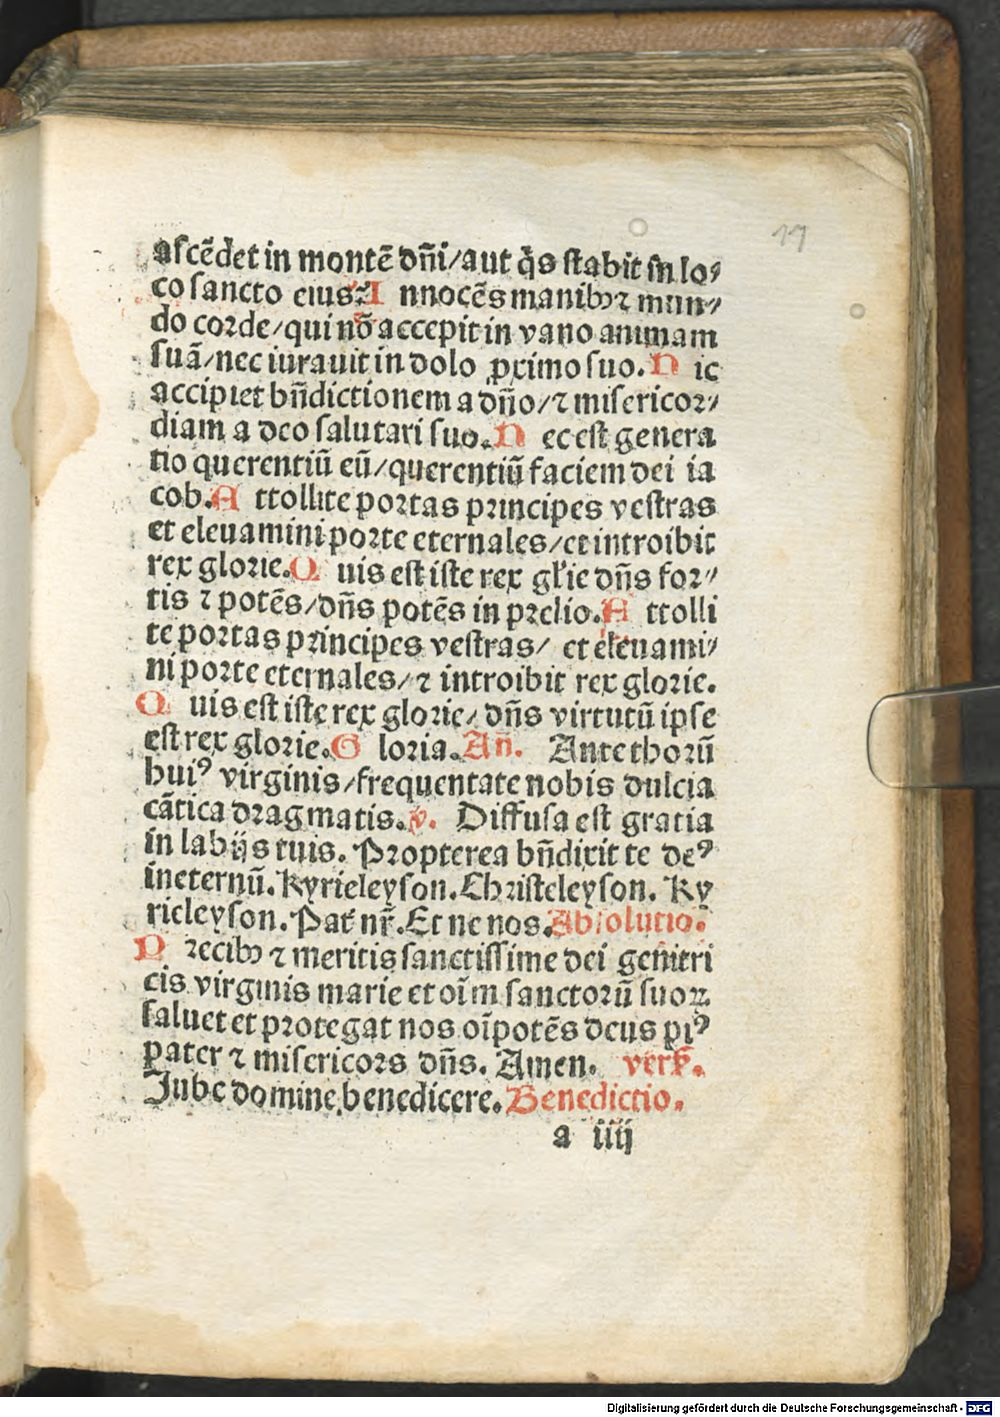 17
ascēdet in montē dn̄i/aut q̄s stabit in lo⸗
co sancto eius? I nnocēs manibꝰ ⁊ mun⸗
do corde/qui nō accepit in vano animam
suā/nec iurauit in dolo ꝓximo suo. H ic
accipiet bn̄dictionem a dn̄o/⁊ misericor⸗
diam a deo salutari suo. H ec est genera
tio querentiū eū/querentiū faciem dei ia
cob. A ttollite portas principes vestras
et eleuamini porte eternales/et introibit
rex glorie. Q uis est iste rex gl'ie dn̄s for⸗
tis ⁊ potēs/dn̄s potēs in prelio. A ttolli
te portas principes vestras/ et eleuami⸗
ni porte eternales/⁊ introibit rex glorie.
Q uis est iste rex glorie/dn̄s virtutū ipse
est rex glorie. G loria. An̄. Ante thorū
huiꝰ virginis/frequentate nobis dulcia
cātica dragmatis. ꝟ. Diffusa est gratia
in labijs tuis. Propterea bn̄dixit te deꝰ
in eternū. Kyrieleyson. Christeleyson. Ky
rieleyson. Pat' nr̄. Et ne nos. Absolutio.
P recibꝰ ⁊ meritis sanctissime dei genitri
cis virginis marie et oīm sanctorū suoꝝ
saluet et protegat nos oīpotēs deus piꝰ
pater ⁊ misericors dn̄s. Amen. versꝰ.
Jube domine benedicere. Benedictio.
a iiij
Digitalisierung gefördert durch die Deutsche Forschungsgemeinschaft - DFG